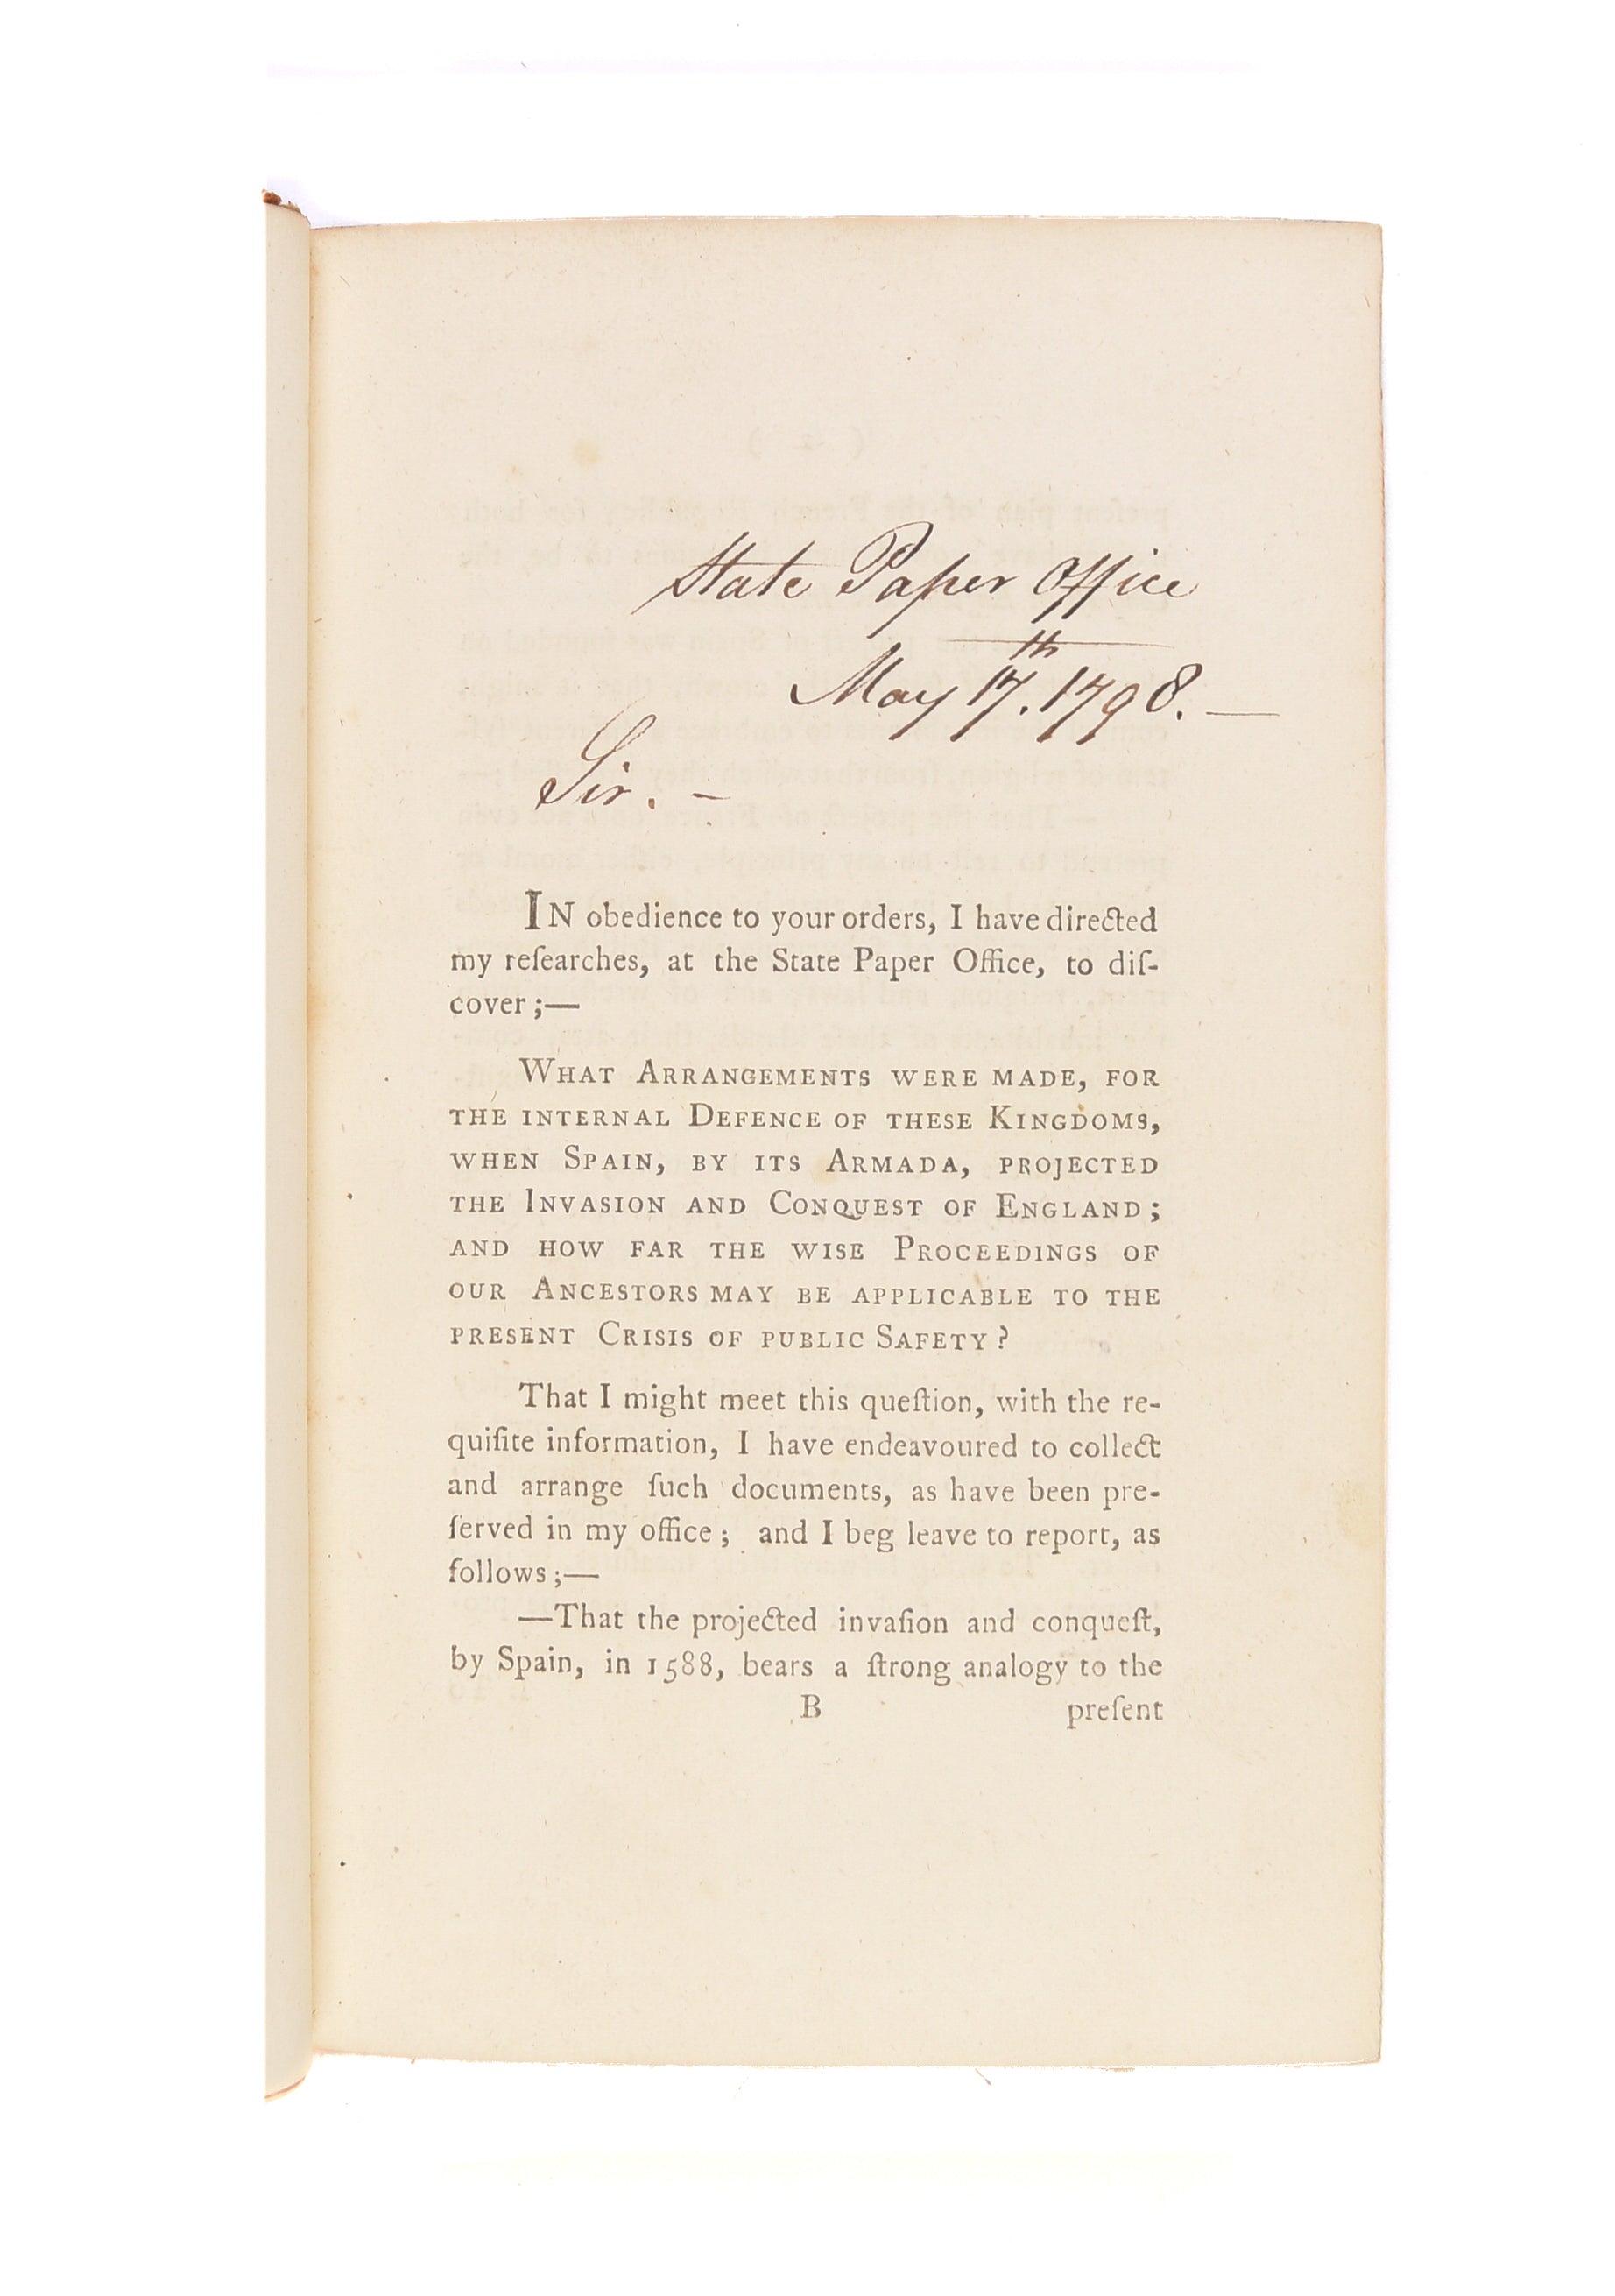 State Paper Office
May 17th. 1798. —
Sir. –
IN obedience to your orders, I have directed
my reſearches, at the State Paper Office, to diſ-
cover;—
WHAT ARRANGEMENTS WERE MADE, FOR
THE INTERNAL DEFENCE OF THESE KINGDOMS,
WHEN SPAIN, BY ITS ARMADA, PROJECTED
THE INVASION AND CONQUEST OF ENGLAND;
AND HOW FAR THE WISE PROCEEDINGS OF
OUR ANCESTORS MAY BE APPLICABLE TO THE
PRESENT CRISIS OF PUBLIC SAFETY?
That I might meet this queſtion, with the re-
quiſite information, I have endeavoured to collect
and arrange ſuch documents, as have been pre-
ſerved in my office; and I beg leave to report, as
follows;—
—That the projected invaſion and conqueſt,
by Spain, in 1588, bears a ſtrong analogy to the
B present